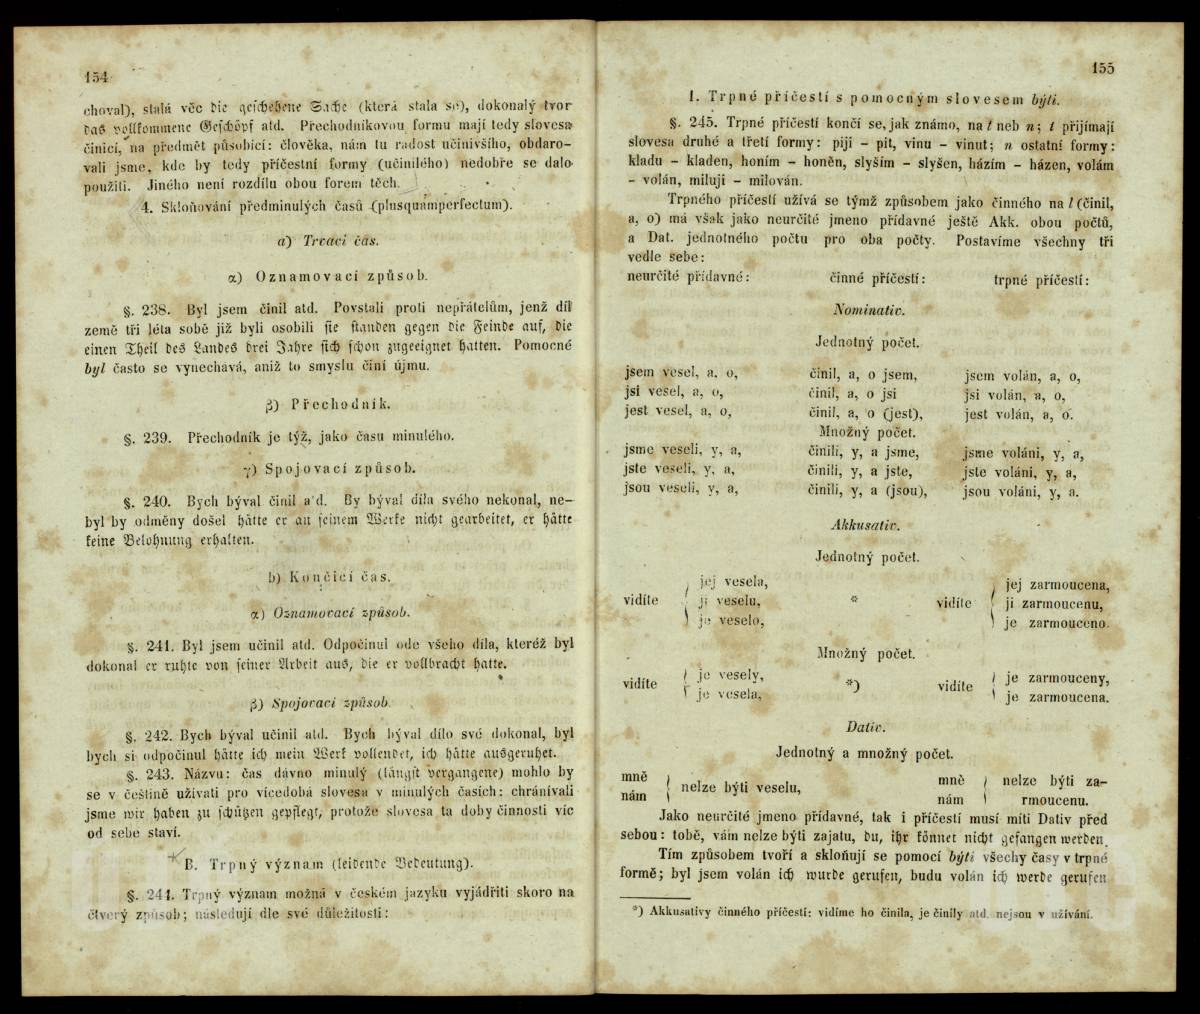 154
choval), stalá věc die geschehene Sache (která stala se), dokonalý tvor
das vollkommene Geschöpf atd. Přechodníkovou formu mají tedy slovesa
činicí, na předmět působicí: člověka, nám tu radost učinivšího, obdaro-
vali jsme, kde by tedy příčestní formy (učinilého) nedobře se dalo
použiti. Jiného není rozdílu obou forem těch.
4. Skloňování předminulých časů (plusquamperfectum).
a) Trvací čas.
α) Oznamovací způsob.
§. 238. Byl jsem činil atd. Povstali proti nepřátelům, jenž díl
země tři léta sobě již byli osobili sie standen gegen die Feinde auf, die
einen Theil des Landes drei Jahre sich schon zugeeignet hatten. Pomocné
byl často se vynechává, aniž to smyslu činí újmu.
β) Přechodník.
§. 239. Přechodník je týž, jako času minulého.
γ) Spojovací způsob.
§. 240. Bych býval činil a d. By býval díla svého nekonal, ne-
byl by odměny došel hätte er an seinem Werke nicht gearbeitet, er hätte
keine Belohnung erhalten.
b) Končicí čas.
α) Oznamovací způsob.
§. 241. Byl jsem učinil atd. Odpočinul ode všeho díla, kteréž byl
dokonal er ruhte von seiner Arbeit aus, die er vollbracht hatte.
β) Spojovací způsob.
§. 242. Bych býval učinil atd. Bych býval dílo své dokonal, byl
bych si odpočinul hätte ich mein Werk vollendet, ich hätte ausgeruhet.
§. 243. Názvu: čas dávno minulý (längst vergangene) mohlo by
se v češtině užívati pro vícedobá slovesa v minulých časích: chránívali
jsme wir haben zu schützen gepflegt, protože slovesa ta doby činnosti víc
od sebe staví.
B. Trpný význam (leidende Bedeutung).
§. 244. Trpný význam možná v českém jazyku vyjádřiti skoro na
čtverý způsob; následují dle své důležitosti:
155
1. Trpné příčestí s pomocným slovesem býti.
§. 245. Trpné příčestí končí se, jak známo, na t neb n; t přijímají
slovesa druhé a třetí formy: piji – pit, vinu – vinut; n ostatní formy:
kladu – kladen, honím – honěn, slyším – slyšen, házím – házen, volám
– volán, miluji – milován.
Trpného příčestí užívá se týmž způsobem jako činného na l (činil,
a, o) má však jako neurčité jmeno přídavné ještě Akk. obou počtů,
a Dat. jednotného počtu pro oba počty. Postavíme všechny tři
vedle sebe:
neurčité přídavné: činné příčestí: trpné příčestí:
Nominativ.
Jednotný počet.
jsem vesel, a, o, činil, a, o jsem, jsem volán, a, o,
jsi vesel, a, o, činil, a, o jsi jsi volán, a, o,
jest vesel, a, o, činil, a, o (jest), jest volán, a, o.
Množný počet.
jsme veseli, y, a, činili, y, a jsme, jsme voláni, y, a,
jste veseli, y, a, činili, y, a jste, jste voláni, y, a,
jsou veseli, y, a, činili, y, a (jsou), jsou voláni, y, a.
Akkusativ.
Jednotný počet.
jej vesela, jej zarmoucena,
vidíte ji veselu, * vidíte ji zarmoucenu,
je veselo, je zarmouceno.
Množný počet.
je vesely, je zarmouceny,
vidíte *) vidíte
je vesela, je zarmoucena.
Dativ.
Jednotný a množný počet.
mně mně nelze býti za-
nelze býti veselu,
nám nám rmoucenu.
Jako neurčité jmeno přídavné, tak i příčestí musí míti Dativ před
sebou: tobě, vám nelze býti zajatu, du, ihr könnet nicht gefangen werden.
Tím způsobem tvoří a skloňují se pomocí býti všechy časy v trpné
formě; byl jsem volán ich wurde gerufen, budu volán ich werde gerufen
*) Akkusativy činného příčestí: vidíme ho činila, je činily atd. nejsou v užívání.